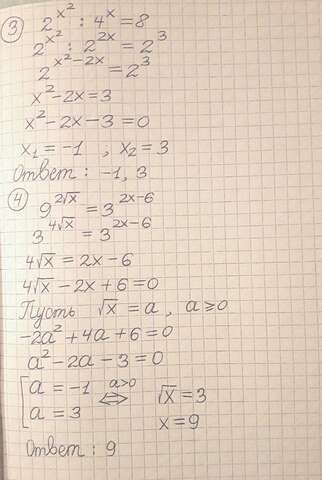 ③ 2^{x^2} : 4^x = 8
2^{x^2} : 2^{2x} = 2^3
2^{x^2-2x} = 2^3
x^2-2x=3
x^2-2x-3=0
x_1=-1 , x_2=3
Ответ: -1, 3
④ 9^{2√x} = 3^{2x-6}
3^{4√x} = 3^{2x-6}
4√x = 2x-6
4√x - 2x + 6 = 0
Пусть √x = a, a≥0
-2a^2+4a+6=0
a^2-2a-3=0
[a=-1 a>0 ⇔ √x=3
[a=3 x=9
Ответ: 9